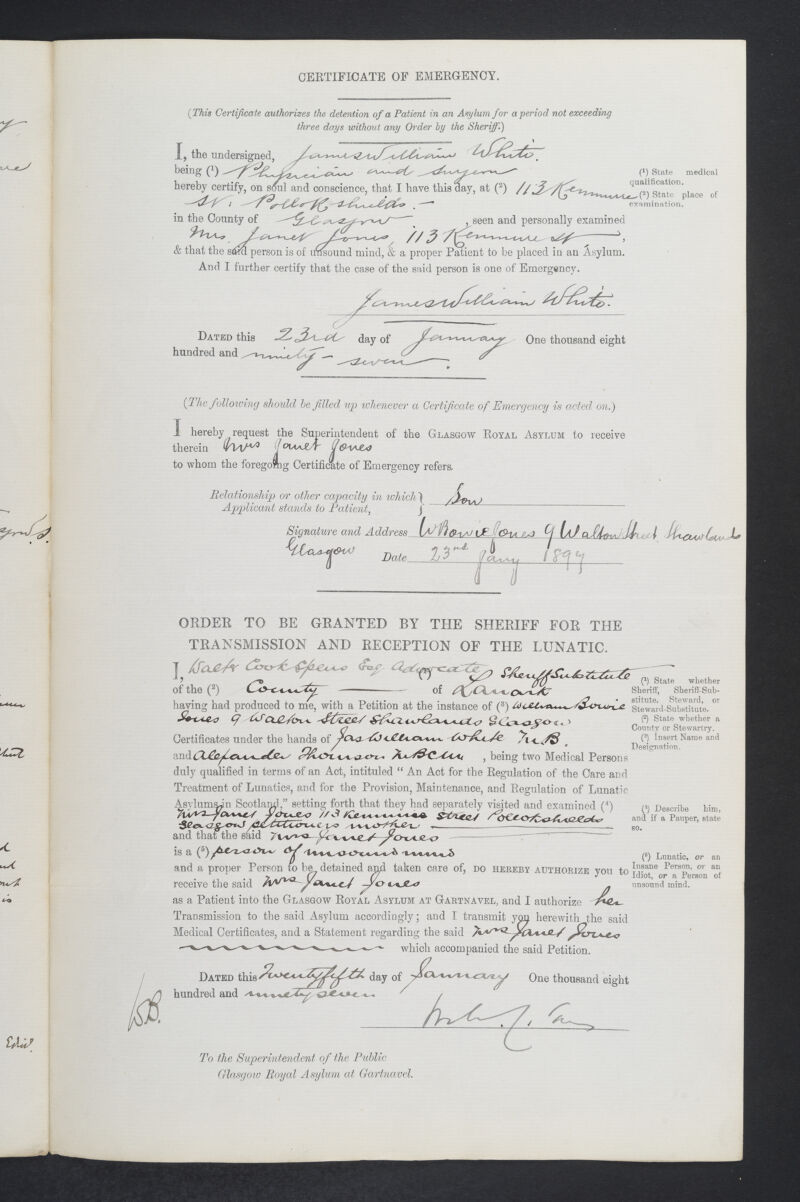 CERTIFICATE OF EMERGENCY.
(This Certificate authorizes the detention of a Patient in an Asylum for a period not exceeding
three days without any Order by the Sheriff.)
I, the undersigned, James William White.
being (¹) Physician and Surgeon
(¹) State medical
qualification.
hereby certify, on soul and conscience, that I have this day, at (²) 113 Kenmure
(²) State place of
examination.
St. Pollokshields.
in the County of Glasgow, seen and personally examined
Mrs. Janet Jones, 113 Kenmure St,
& that the said person is of unsound mind, & a proper Patient to be placed in an Asylum.
And I further certify that the case of the said person is one of Emergency.
James William White.
DATED this 23rd day of January One thousand eight
hundred and ninety-seven.
(The following should be filled up whenever a Certificate of Emergency is acted on.)
I hereby request the Superintendent of the GLASGOW ROYAL ASYLUM to receive
therein Mrs Janet Jones
to whom the foregoing Certificate of Emergency refers.
Relationship or other capacity in which } Son
Applicant stands to Patient, }
Signature and Address W Bowie Jones 9 Walton Street, Shawlands
Glasgow Date 23rd Jany 1897
ORDER TO BE GRANTED BY THE SHERIFF FOR THE
TRANSMISSION AND RECEPTION OF THE LUNATIC.
I, Walter Cook Spens Esq Advocate (¹) Sheriff Substitute
(¹) State whether
Sheriff, Sheriff-Sub-
stitute, Steward, or
Steward-Substitute.
of the (²) County of Lanark
(²) State whether a
County or Stewartry.
having had produced to me, with a Petition at the instance of (³) William Bowie
(³) Insert Name and
Designation.
Jones 9 Walton Street Shawlands Glasgow
Certificates under the hands of Jas William White M.B.
and Alexander Thomson M.B.C.M., being two Medical Persons
duly qualified in terms of an Act, intituled "An Act for the Regulation of the Care and
Treatment of Lunatics, and for the Provision, Maintenance, and Regulation of Lunatic
Asylums in Scotland," setting forth that they had separately visited and examined (⁴)
(⁴) Describe him,
and if a Pauper, state
so.
Mrs Janet Jones 113 Kenmure Street Pollokshields
Glasgow, petitioners mother
and that the said Mrs Janet Jones
is a (⁵) person of unsound mind
(⁵) Lunatic, or an
Insane Person, or an
Idiot, or a Person of
unsound mind.
and a proper Person to be detained and taken care of, DO HEREBY AUTHORIZE you to
receive the said Mrs Janet Jones
as a Patient into the GLASGOW ROYAL ASYLUM AT GARTNAVEL, and I authorize her
Transmission to the said Asylum accordingly; and I transmit you herewith the said
Medical Certificates, and a Statement regarding the said Mrs Janet Jones
which accompanied the said Petition.
DATED this Twenty fifth day of January One thousand eight
hundred and ninety seven
To the Superintendent of the Public
Glasgow Royal Asylum at Gartnavel.